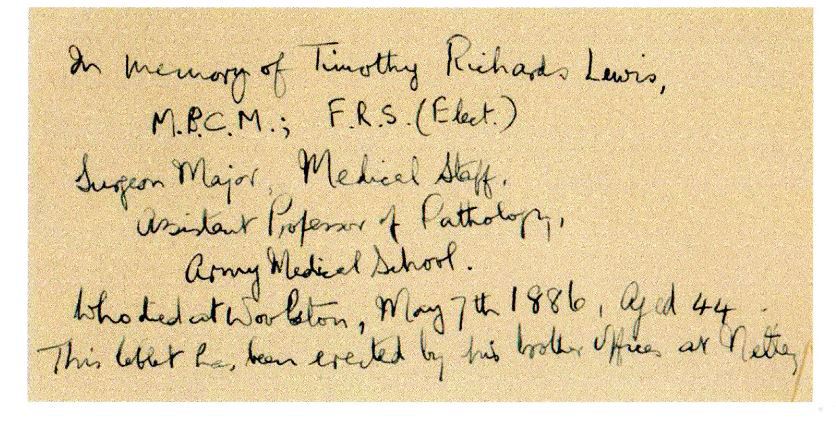 In memory of Timothy Richards Lewis,
M.B.C.M.; F.R.S. (Elect.)
Surgeon Major, Medical Staff,
Assistant Professor of Pathology,
Army Medical School.
Who died at Woolston, May 7th 1886, aged 44.
This tablet has been erected by his brother officers at Netley